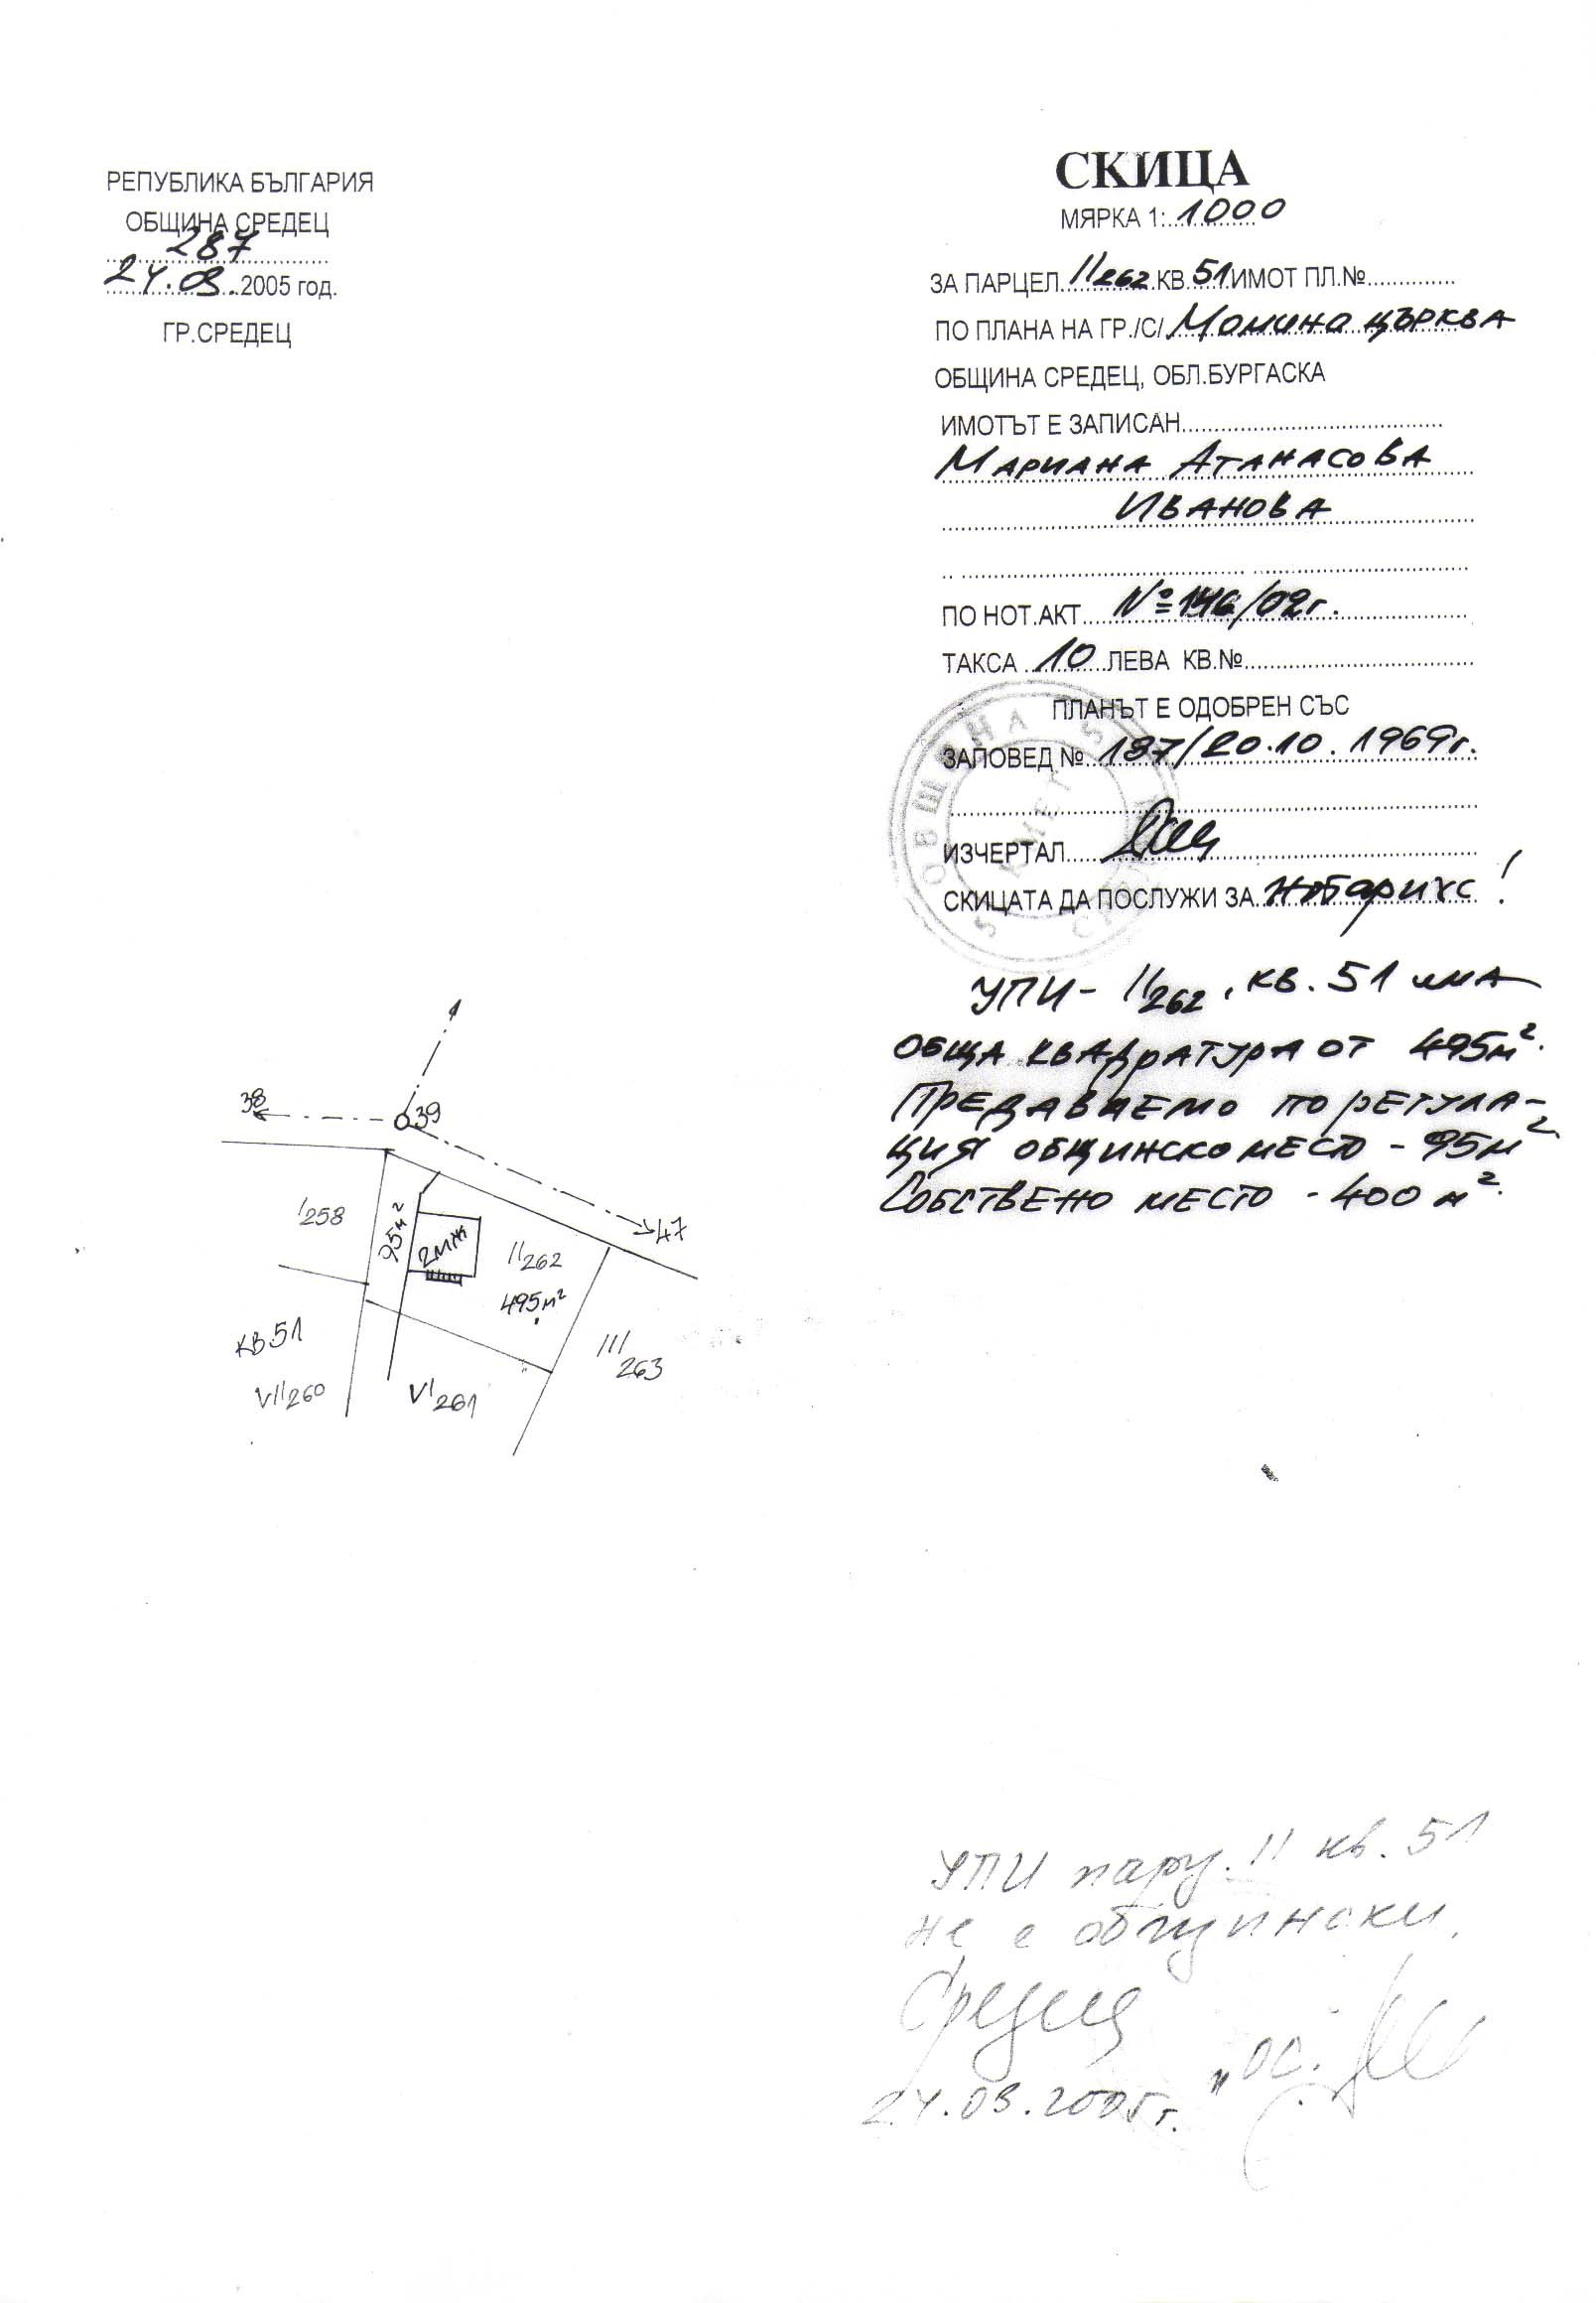 РЕПУБЛИКА БЪЛГАРИЯ
ОБЩИНА СРЕДЕЦ
287
24.03.2005 год.
ГР.СРЕДЕЦ
СКИЦА
МЯРКА 1:1000
ЗА ПАРЦЕЛ II262 КВ.51 ИМОТ ПЛ.№
ПО ПЛАНА НА ГР./С/ Момина църква
ОБЩИНА СРЕДЕЦ, ОБЛ.БУРГАСКА
ИМОТЪТ Е ЗАПИСАН
Мариана Атанасова
Иванова
ПО НОТ.АКТ №146/02г.
ТАКСА 10 ЛЕВА КВ.№
ПЛАНЪТ Е ОДОБРЕН СЪС
ЗАПОВЕД № 187/20.10.1969г.
ИЗЧЕРТАЛ
СКИЦАТА ДА ПОСЛУЖИ ЗА нотариус!
УПИ - II262, кв. 51 има
обща квадратура от 495м².
Предаваемо по регула-
ция общинско место - 95м²
Собствено место - 400 м².
38
39
47
I258
95м²
2МЖ
II262
495м²
III263
КВ.51
VII260
VI261
ОБЩИНА
КМЕТ
УПИ парц. II кв. 51
не е общински.
Средец
24.03.2005г. "ОС.